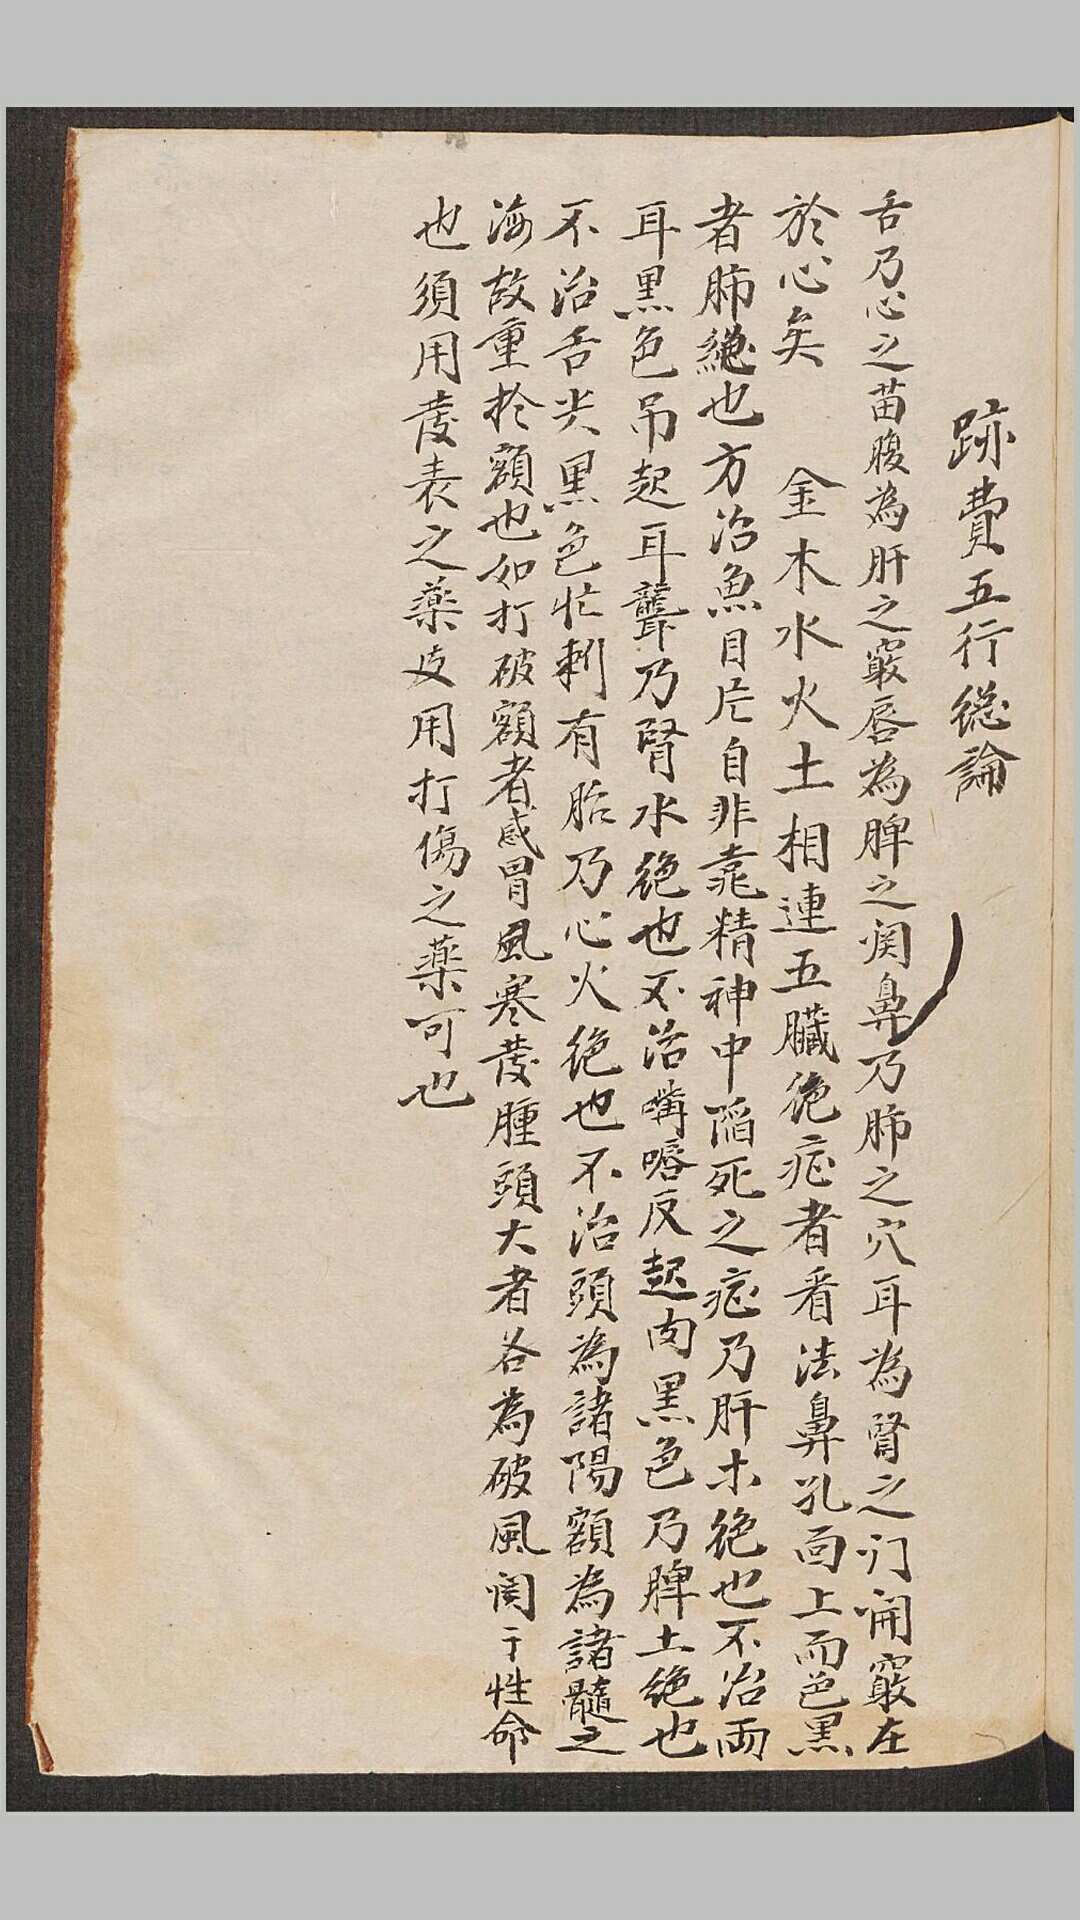 跡費五行総論
舌乃心之苗腹為肝之竅唇為脾之関鼻乃肺之穴耳為腎之门開竅在
於心矣　金木水火土相連五臟絶症者看法鼻孔面上面色黑
者肺絶也方治魚目片自非靠精神中陷死之症乃肝木绝也不治両
耳黑色吊起耳聾乃腎水绝也不治嘴唇反起肉黑色乃脾土绝也
不治舌尖黑色忙刺有胎乃心火绝也不治頭為諸陽額為諸髓之
海故重於額也如打破額者感冒風寒發腫頭大者名為破風関于性命
也須用發表之藥支用打傷之藥可也